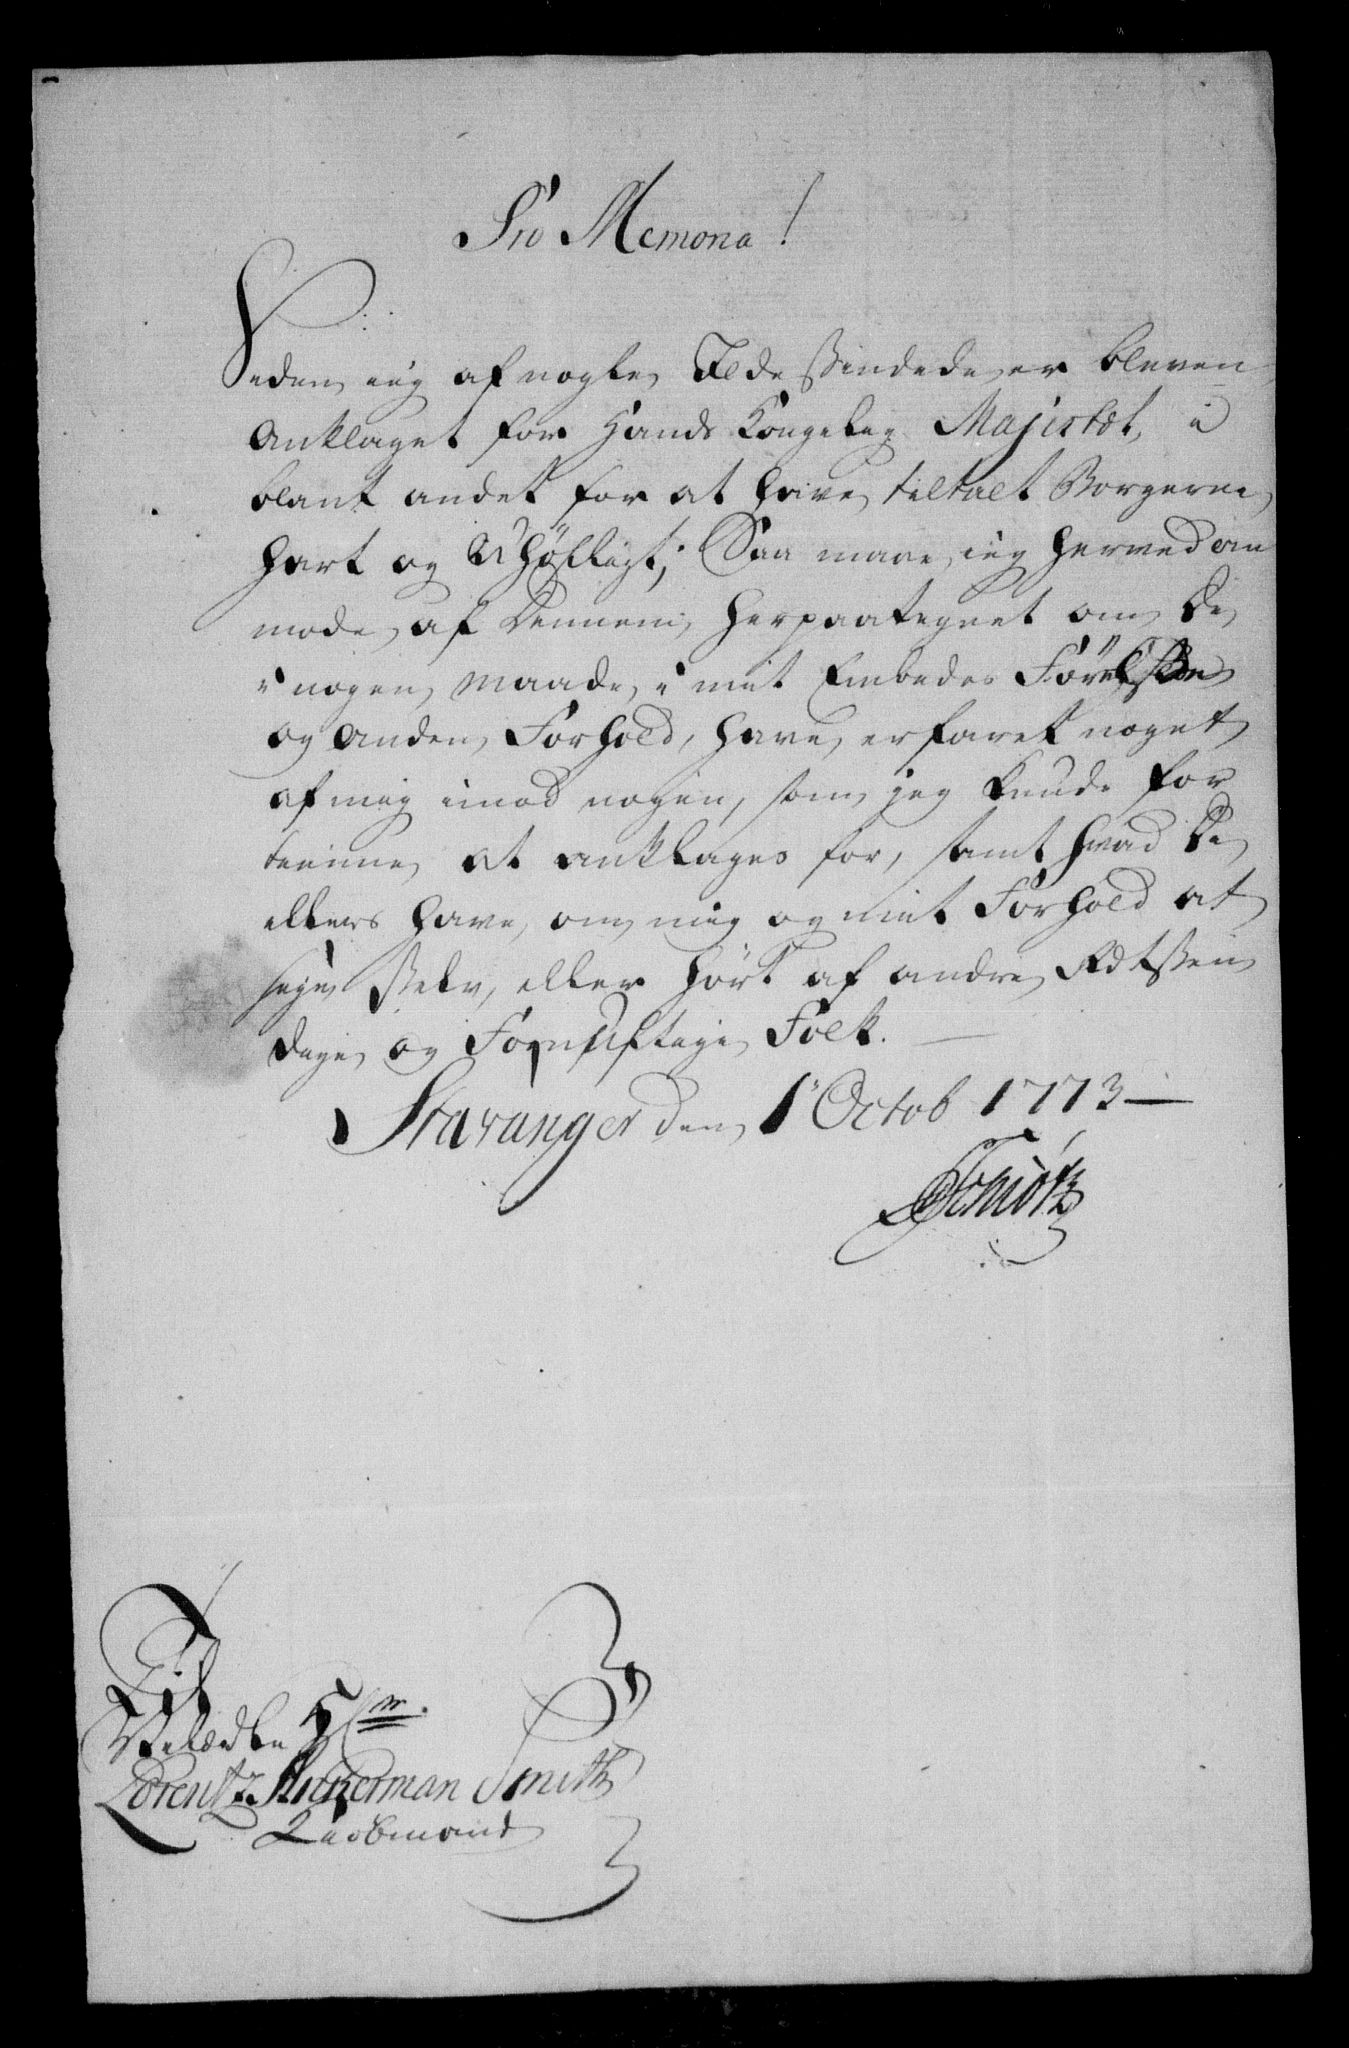 Pro Memoria!
Siden ieg af nogle Ildesindede er bleven
Anklaget for Hands Kongelig Majestæt, i
blant andet for at have tiltalt Borgerne
hart og Uhøfligt; Saa maae ieg herved an
mode af Dennem herpaategnet om De
i nogen maade, i mit Embedes Førelse
og anden Forhold, have erfaret noget
af mig imod nogen, som jeg kunde for
tienne at anklages for, samt hvad De
ellers have om mig og mit Forhold at
sige selv, eller hørt af andre Retsin
dige og Fornuftige Folk.
Stavanger den 1 Octob 1773
Til
Velædle Hr
Lorentz Ankerman Smith
Kiøbmand